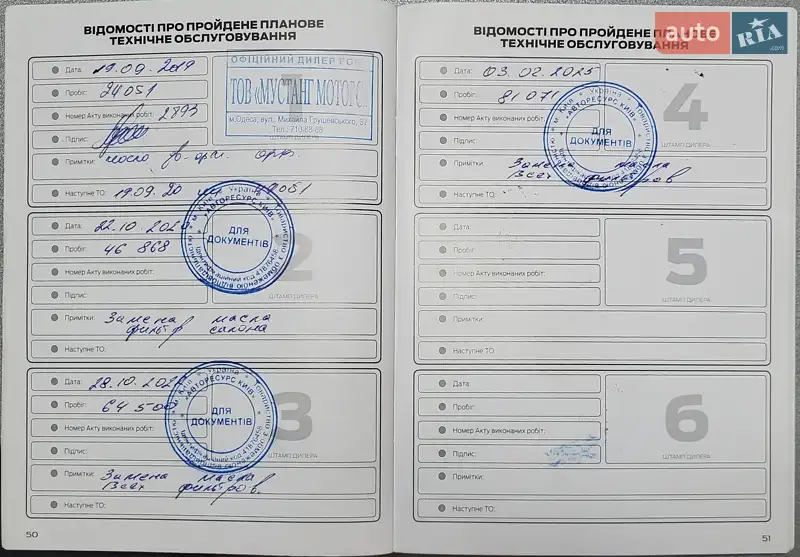 ВІДОМОСТІ ПРО ПРОЙДЕНЕ ПЛАНОВЕ
ТЕХНІЧНЕ ОБСЛУГОВУВАННЯ
1
Дата: 19.09.2019
Пробіг: 24051
Номер Акту виконаних робіт: 2893
Підпис:
Примітки: масло
Наступне ТО: 19.09.20
ОФІЦІЙНИЙ ДИЛЕР
ТОВ «МУСТАНГ МОТОРС
м.Одеса, вул. Михайла Грушевського, 37
Тел.: 710-88-88
2
Дата: 22.10.202
Пробіг: 46 868
Номер Акту виконаних робіт:
Підпис:
ШТАМП ДИЛЕРА
Примітки: Замена масла
фильтр салона
Наступне ТО:
Україна
м. Київ
«АВТОРЕСУРС КИЇВ»
ДЛЯ
ДОКУМЕНТІВ
3
Дата: 28.10.202
Пробіг: 64 500
Номер Акту виконаних робіт:
Підпис:
ШТАМП ДИЛЕРА
Примітки: Замена масла
Всех фильтров.
Наступне ТО:
Україна
м. Київ
«АВТОРЕСУРС КИЇВ»
ДЛЯ
ДОКУМЕНТІВ
50
ВІДОМОСТІ ПРО ПРОЙДЕНЕ ПЛАНОВЕ
ТЕХНІЧНЕ ОБСЛУГОВУВАННЯ
auto RIA
.com
4
Дата: 03.02.2025
Пробіг: 81 071
Номер Акту виконаних робіт:
Підпис:
ШТАМП ДИЛЕРА
Примітки: Замена масла
Всех фильтров
Наступне ТО:
Україна
м. Київ
«АВТОРЕСУРС КИЇВ»
ДЛЯ
ДОКУМЕНТІВ
5
Дата:
Пробіг:
Номер Акту виконаних робіт:
Підпис:
ШТАМП ДИЛЕРА
Примітки:
Наступне ТО:
6
Дата:
Пробіг:
Номер Акту виконаних робіт:
Підпис:
ШТАМП ДИЛЕРА
Примітки:
Наступне ТО:
51